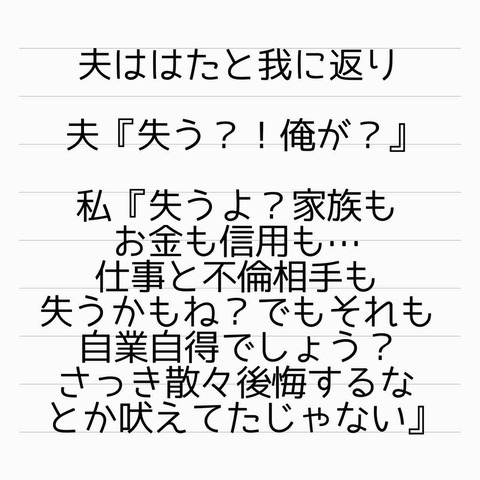 夫ははたと我に返り
夫『失う？！俺が？』
私『失うよ？家族も
お金も信用も…
仕事と不倫相手も
失うかもね？でもそれも
自業自得でしょう？
さっき散々後悔するな
とか吠えてたじゃない』